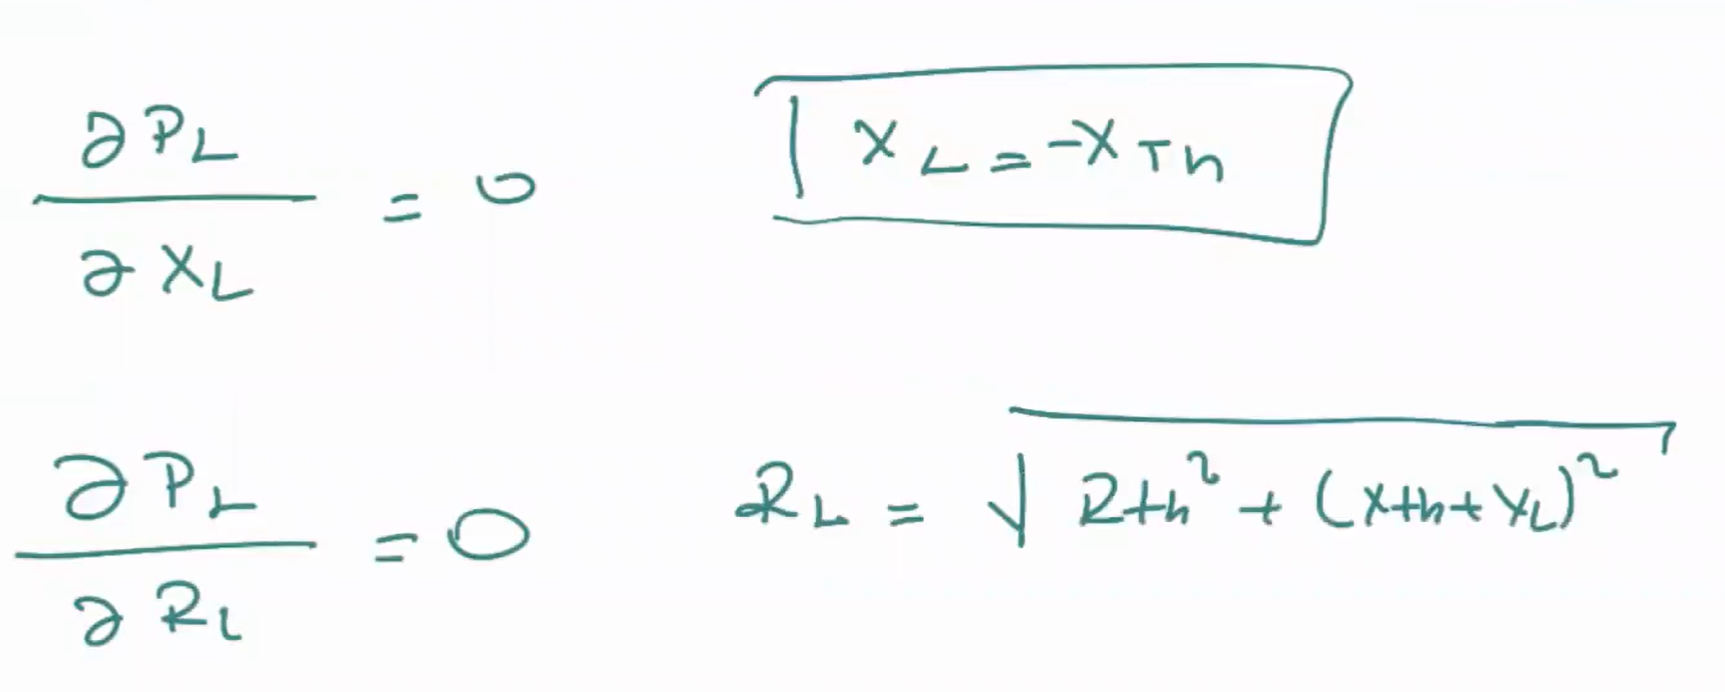 ∂P_L / ∂X_L = 0
X_L = -X_Th
∂P_L / ∂R_L = 0
R_L = √(Rth² + (Xth + X_L)²)